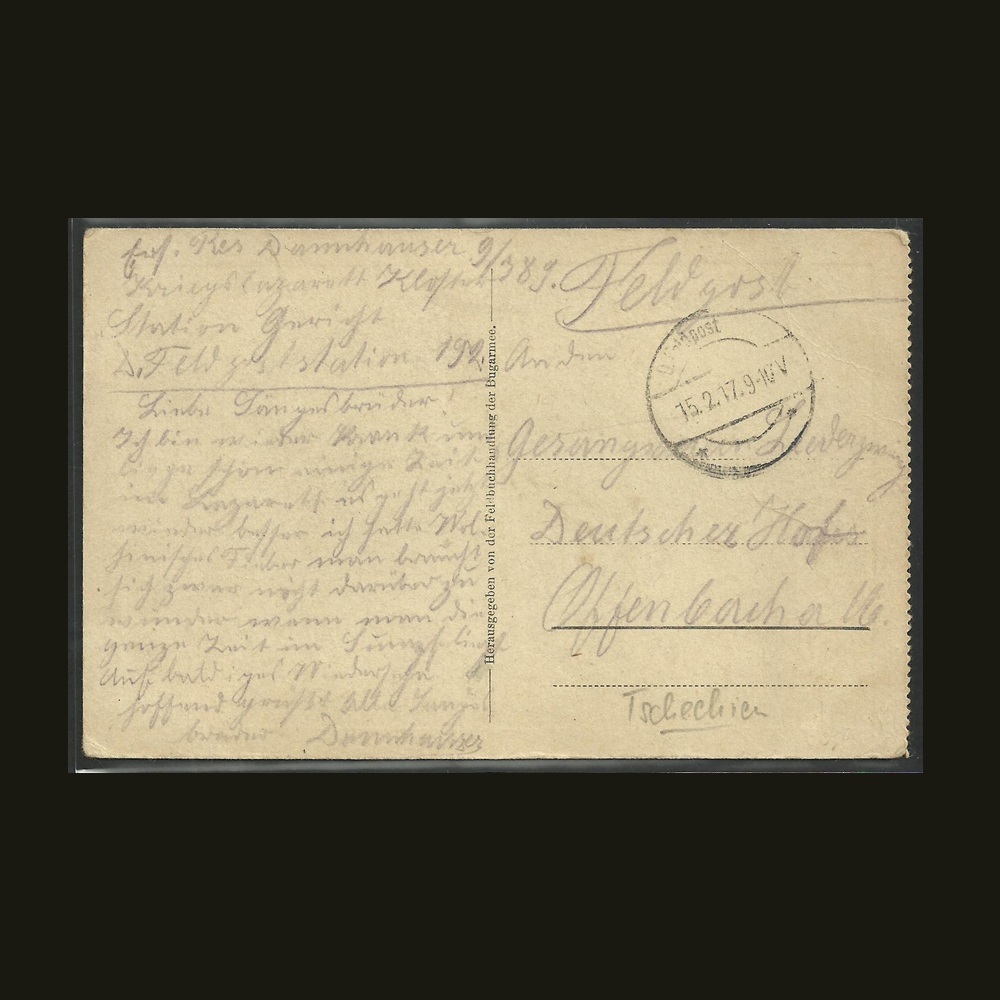 Ers. Res Dannhauser 9/389.
Kriegslazarett Kloster
Station Gericht
D. Feldpoststation 192.
Liebe Sangesbrüder!
Ich bin wieder krank und
liege schon einige Zeit
im Lazarett es geht jetzt
wieder besser ich hatte Wol-
hinisches Fieber man braucht
sich zwar nicht darüber zu
wundern wenn man die
ganze Zeit im Sumpf liegt
Auf baldiges Wiedersehn
hoffend grüßt alle Sanges
brüder Dannhauser
Herausgegeben von der Feldbuchhandlung der Bugarmee.
Feldpost
D. Feldpost
15.2.17.9-10V
An den
Gesangverein Liederzweig
Deutscher Hof
Offenbach a/M.
Tschechien